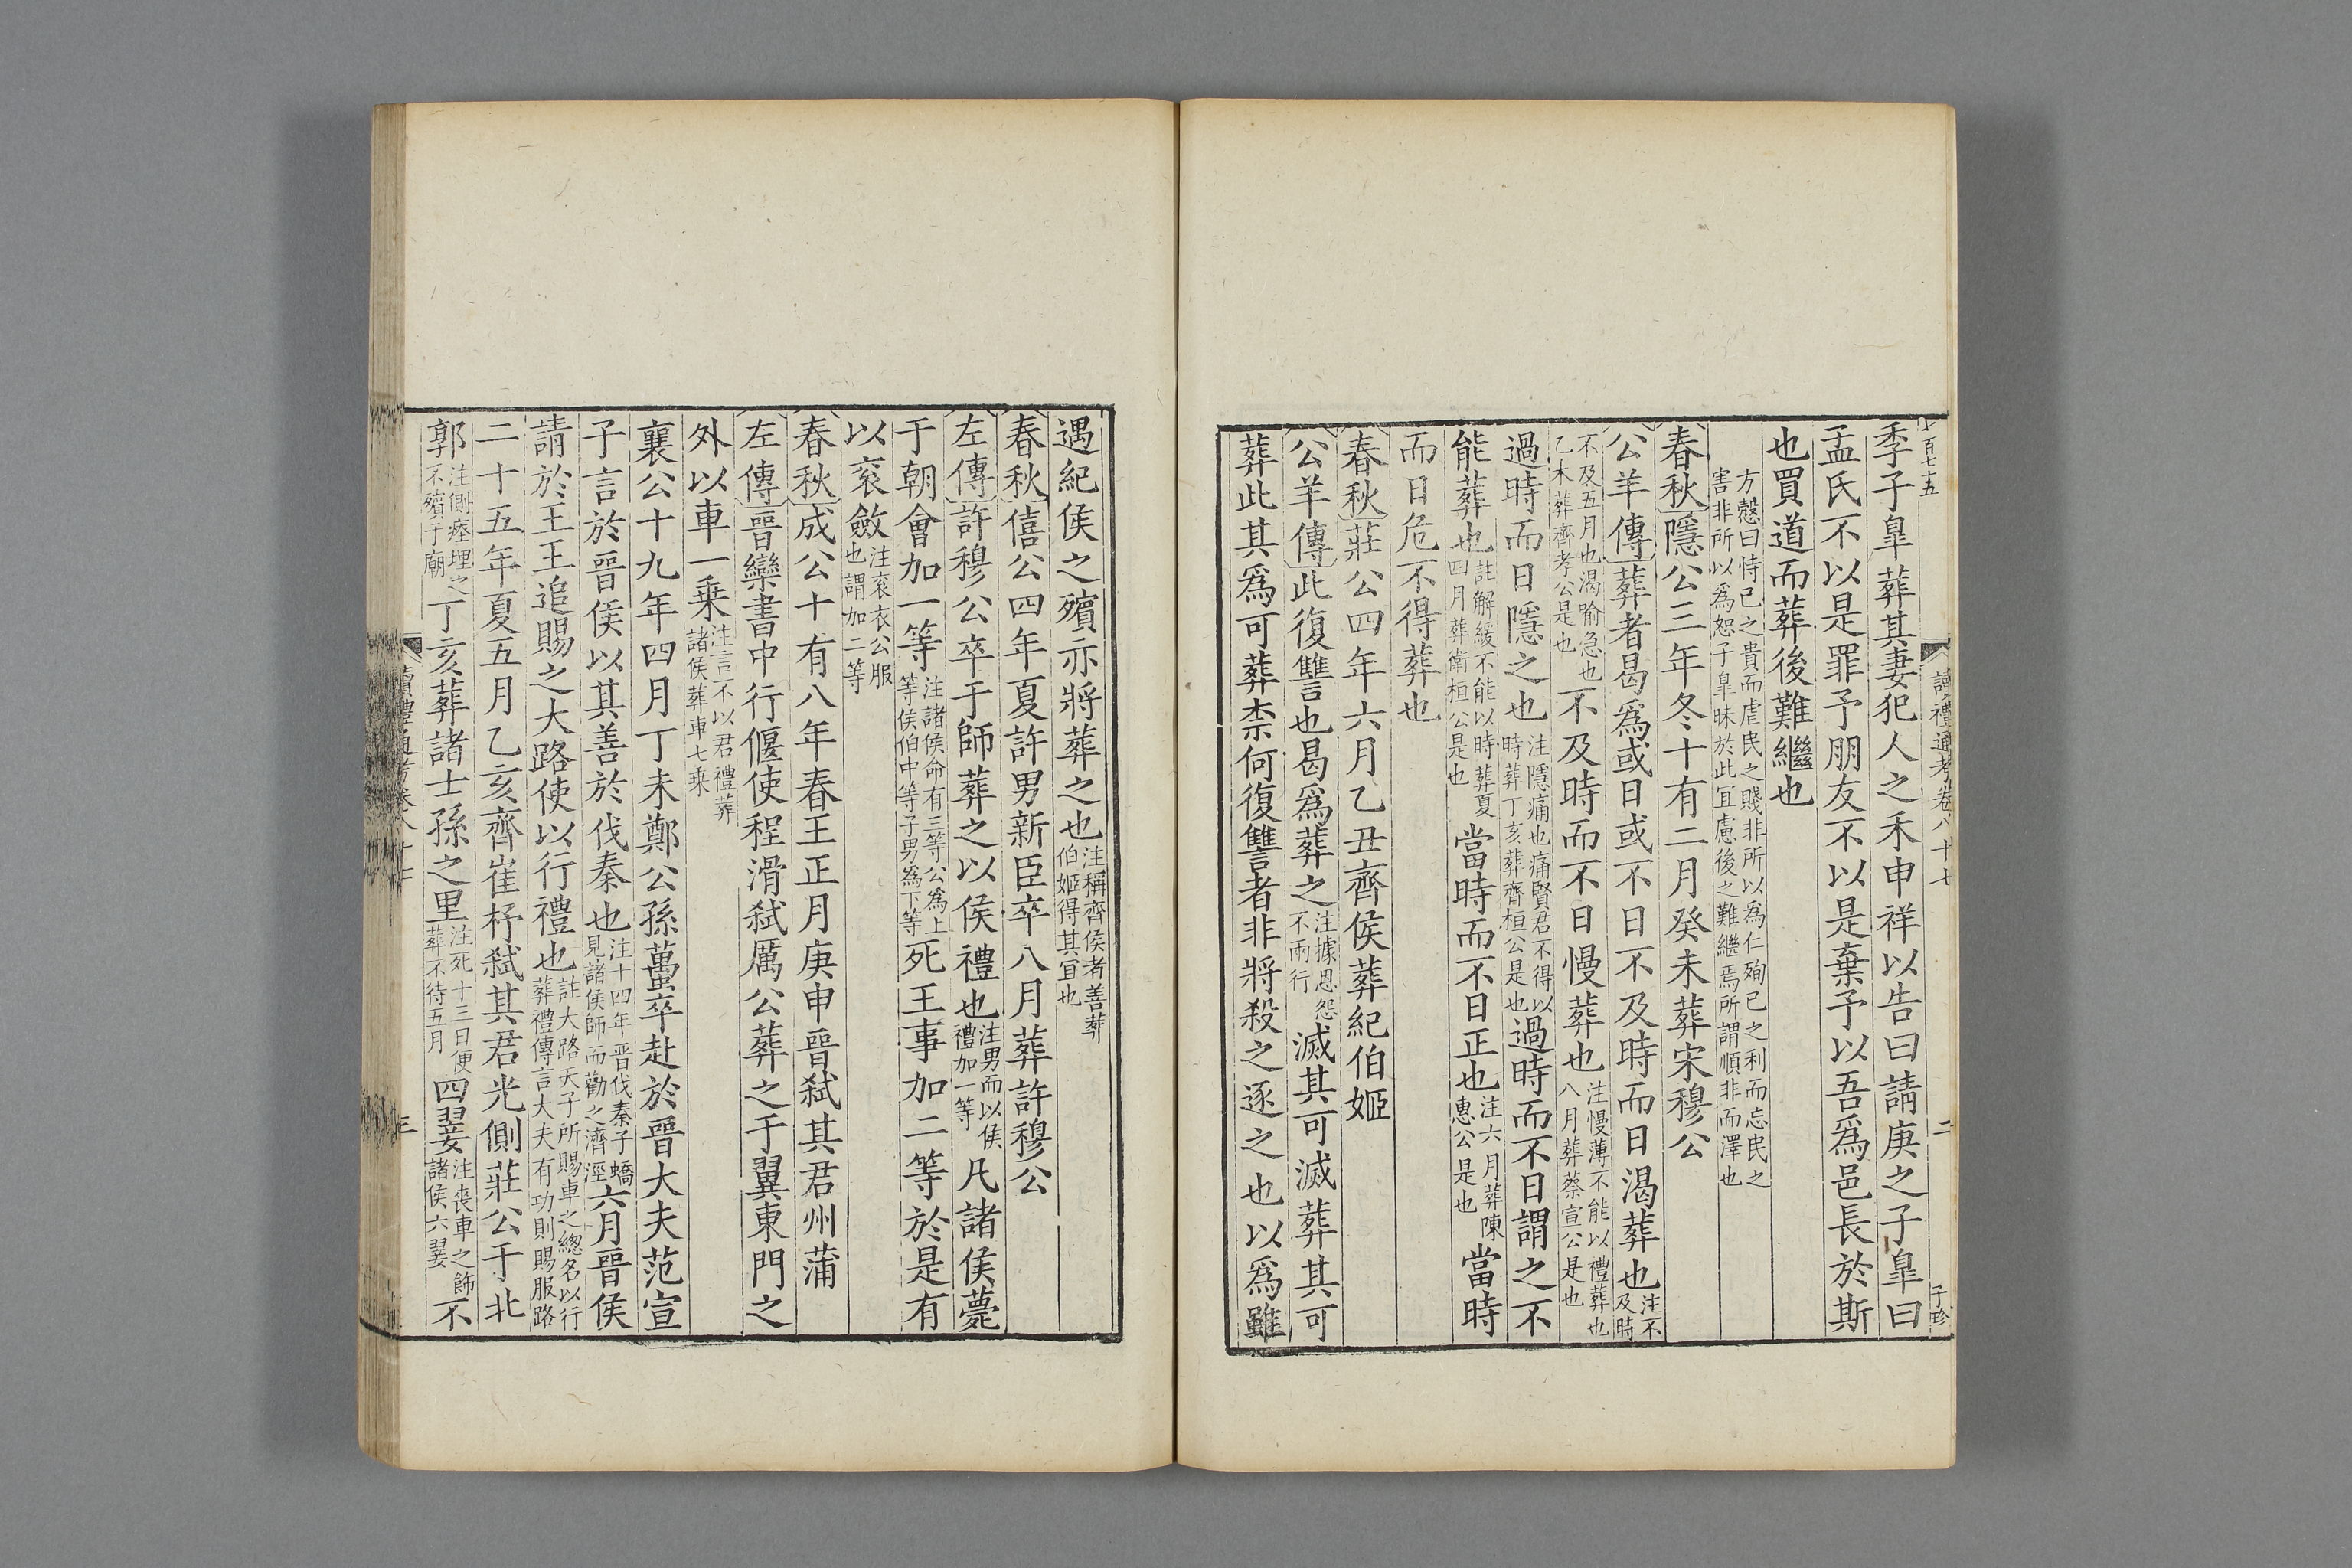 百七十五
讀禮通考卷八十七 二 子珍
季子臯葬其妻犯人之禾申祥以告曰請庚之子臯曰
孟氏不以是罪予朋友不以是棄予以吾爲邑長於斯
也買道而葬後難繼也
方慤曰恃己之貴而虐民之賤非所以爲仁殉己之利而忘民之
害非所以爲恕子臯昧於此冝慮後之難繼焉所謂順非而澤也
春秋隱公三年冬十有二月癸未葬宋穆公
公羊傳葬者曷爲或日或不日不及時而日渴葬也注不及時
不及五月也渴喻急也乙木葬齊孝公是也不及時而不日慢葬也注慢薄不能以禮葬也八月葬蔡宣公是也
過時而日隱之也注隱痛也痛賢君不得以時葬丁亥葬齊桓公是也過時而不日謂之不
能葬也註解緩不能以時葬夏四月葬衛桓公是也當時而不日正也注六月葬陳惠公是也當時
而日危不得葬也
春秋莊公四年六月乙丑齊侯葬紀伯姬
公羊傳此復讐也曷爲葬之注據恩怨不兩行滅其可滅葬其可
葬此其爲可葬柰何復讐者非將殺之逐之也以爲雖
遇紀侯之殯亦將葬之也注稱齊侯者善葬伯姬得其冝也
春秋僖公四年夏許男新臣卒八月葬許穆公
左傳許穆公卒于師葬之以侯禮也注男而以侯禮加一等凡諸侯薨
于朝會加一等注諸侯命有三等公爲上等侯伯中等子男爲下等死王事加二等於是有
以衮斂注衮衣公服也謂加二等
春秋成公十有八年春王正月庚申晉弑其君州蒲
左傳晉欒書中行偃使程滑弑厲公葬之于翼東門之
外以車一乗注言不以君禮葬諸侯葬車七乗
襄公十九年四月丁未鄭公孫蠆卒赴於晉大夫范宣
子言於晉侯以其善於伐秦也注十四年晉伐秦子蟜見諸侯師而勸之濟涇六月晉侯
請於王王追賜之大路使以行禮也註大路天子所賜車之總名以行葬禮傳言大夫有功則賜服路
二十五年夏五月乙亥齊崔杼弑其君光側莊公于北
郭注側瘞埋之不殯于廟丁亥葬諸士孫之里注死十三日便葬不待五月四翣注喪車之飾諸侯六翣不
讀禮通考卷八十七 三